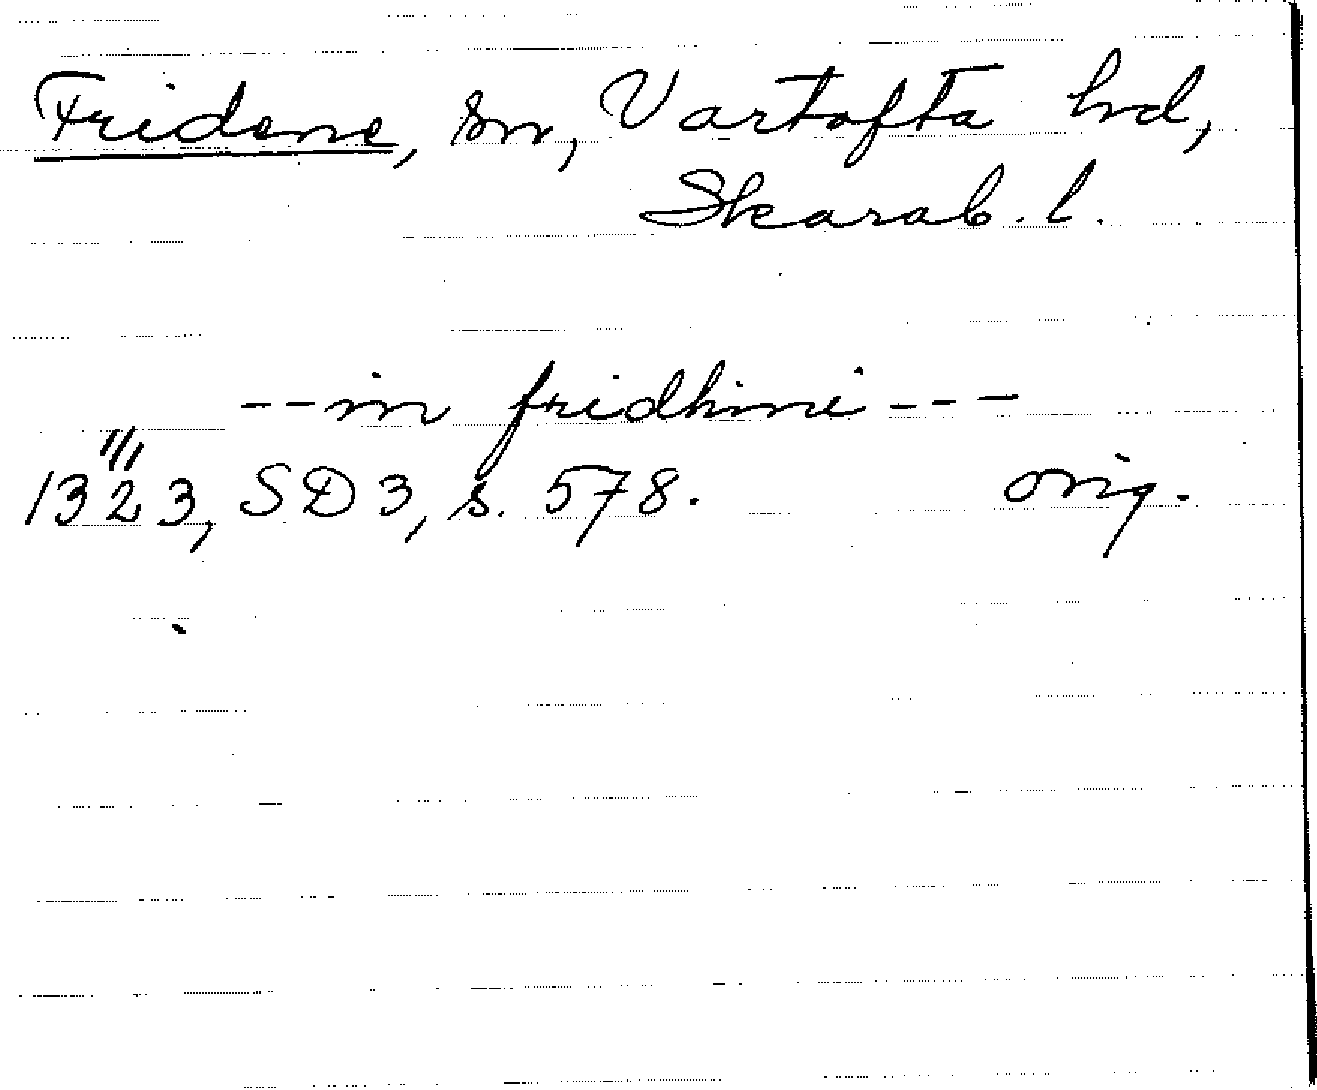 Fridene, sn, Vartofta hd,
Skarab. l.
-- in fridhini ---
1323, SD 3, s. 578. orig.